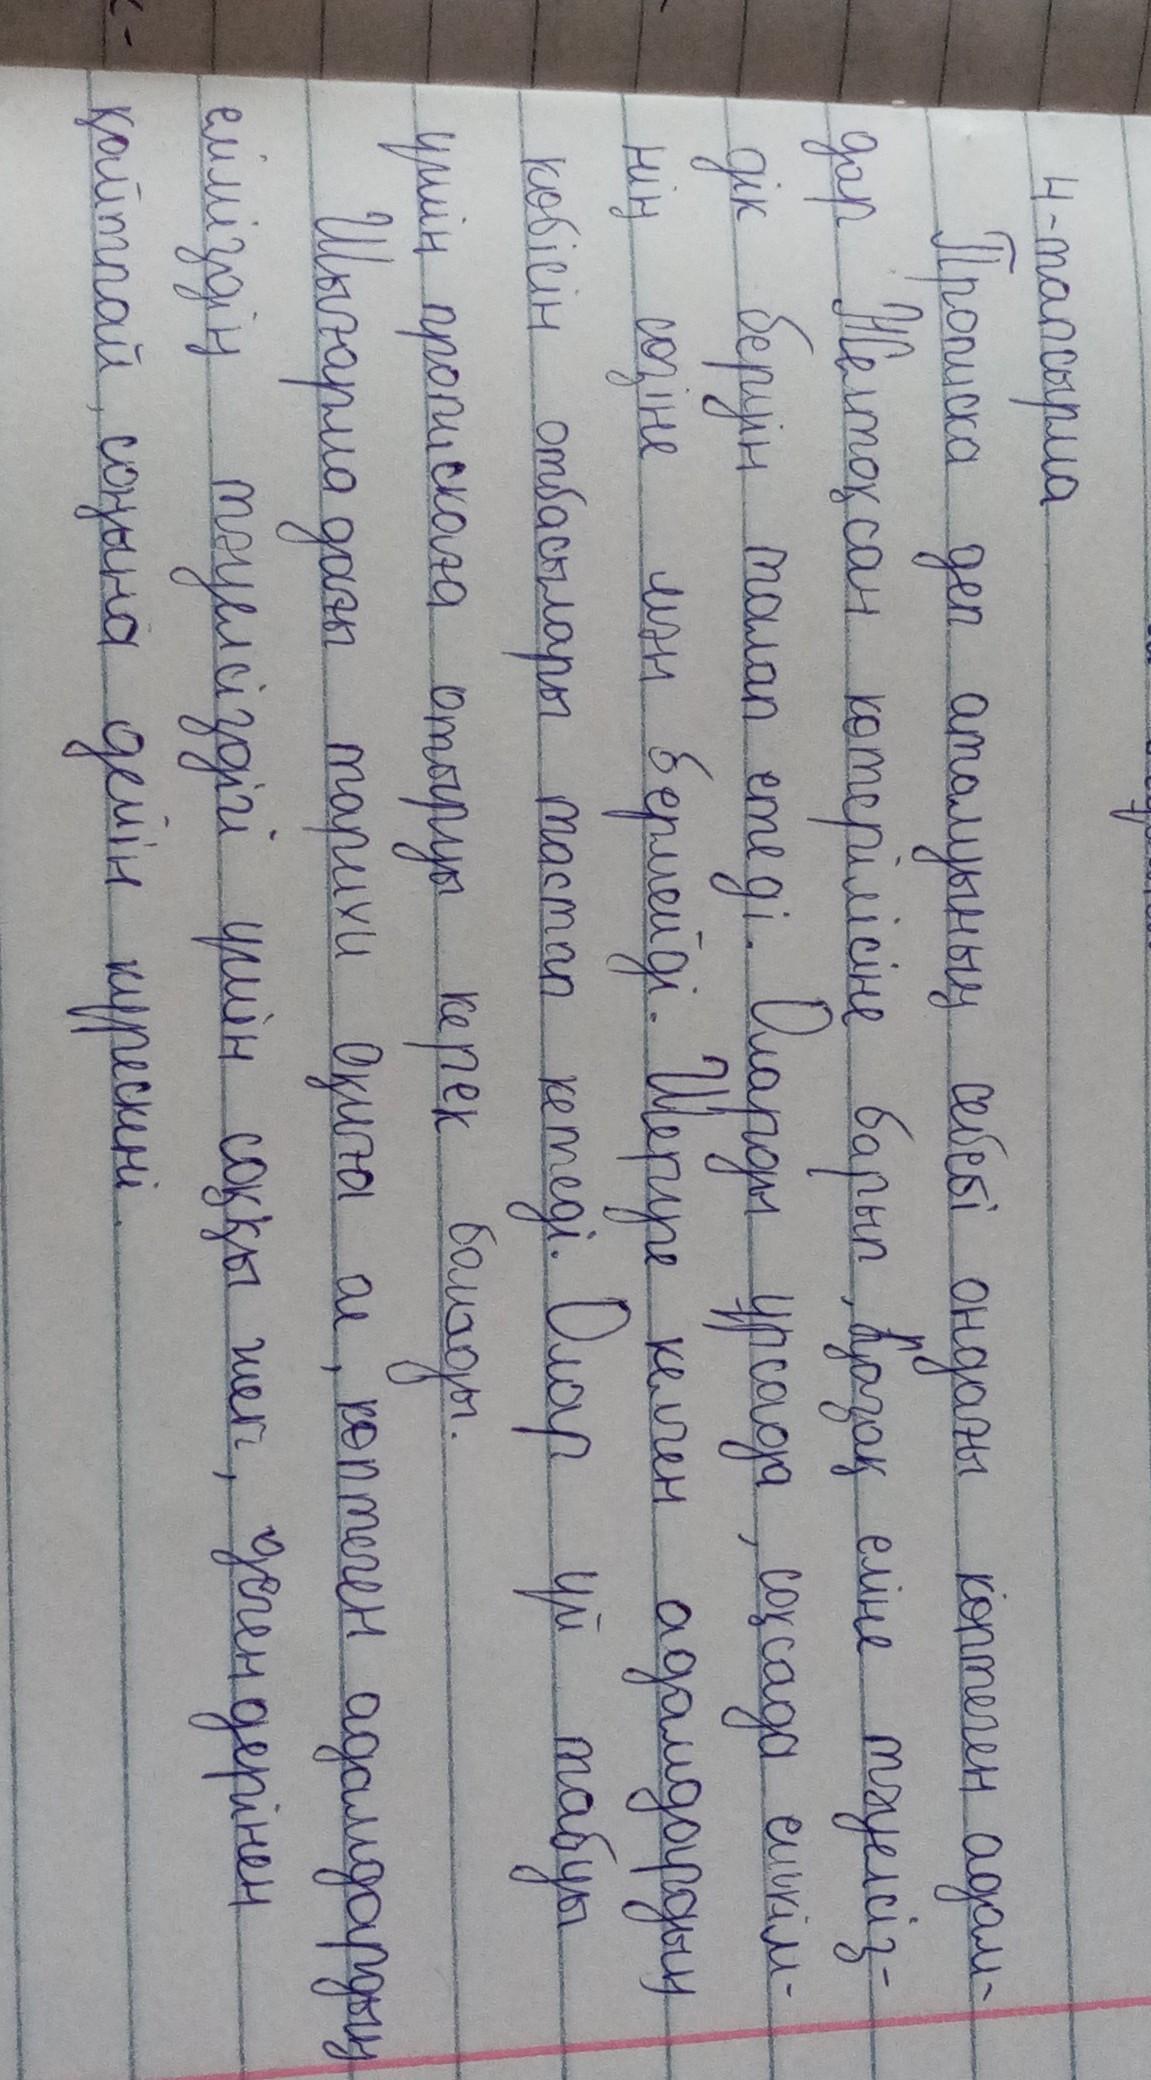 4-тапсырма
Прописка деп аталуының себебі ондағы көптеген адам-
дар Желтоқсан көтерілісіне барып, қазақ еліне тәуелсіз-
дік беруін талап етеді. Оларды ұрсада, соқсада ешкім-
нің сөзіне мән бермейді. Шеруге келген адамдардың
көбісін отбасылары тастап кетеді. Олар үй табуы
үшін прописката отыруы керек болады.
Шығармадағы тарихи оқиға ол, көптеген адамдардың
еліміздің тәуелсіздігі үшін соққы жеп,
қайтпай, соңына дейін күрескені.